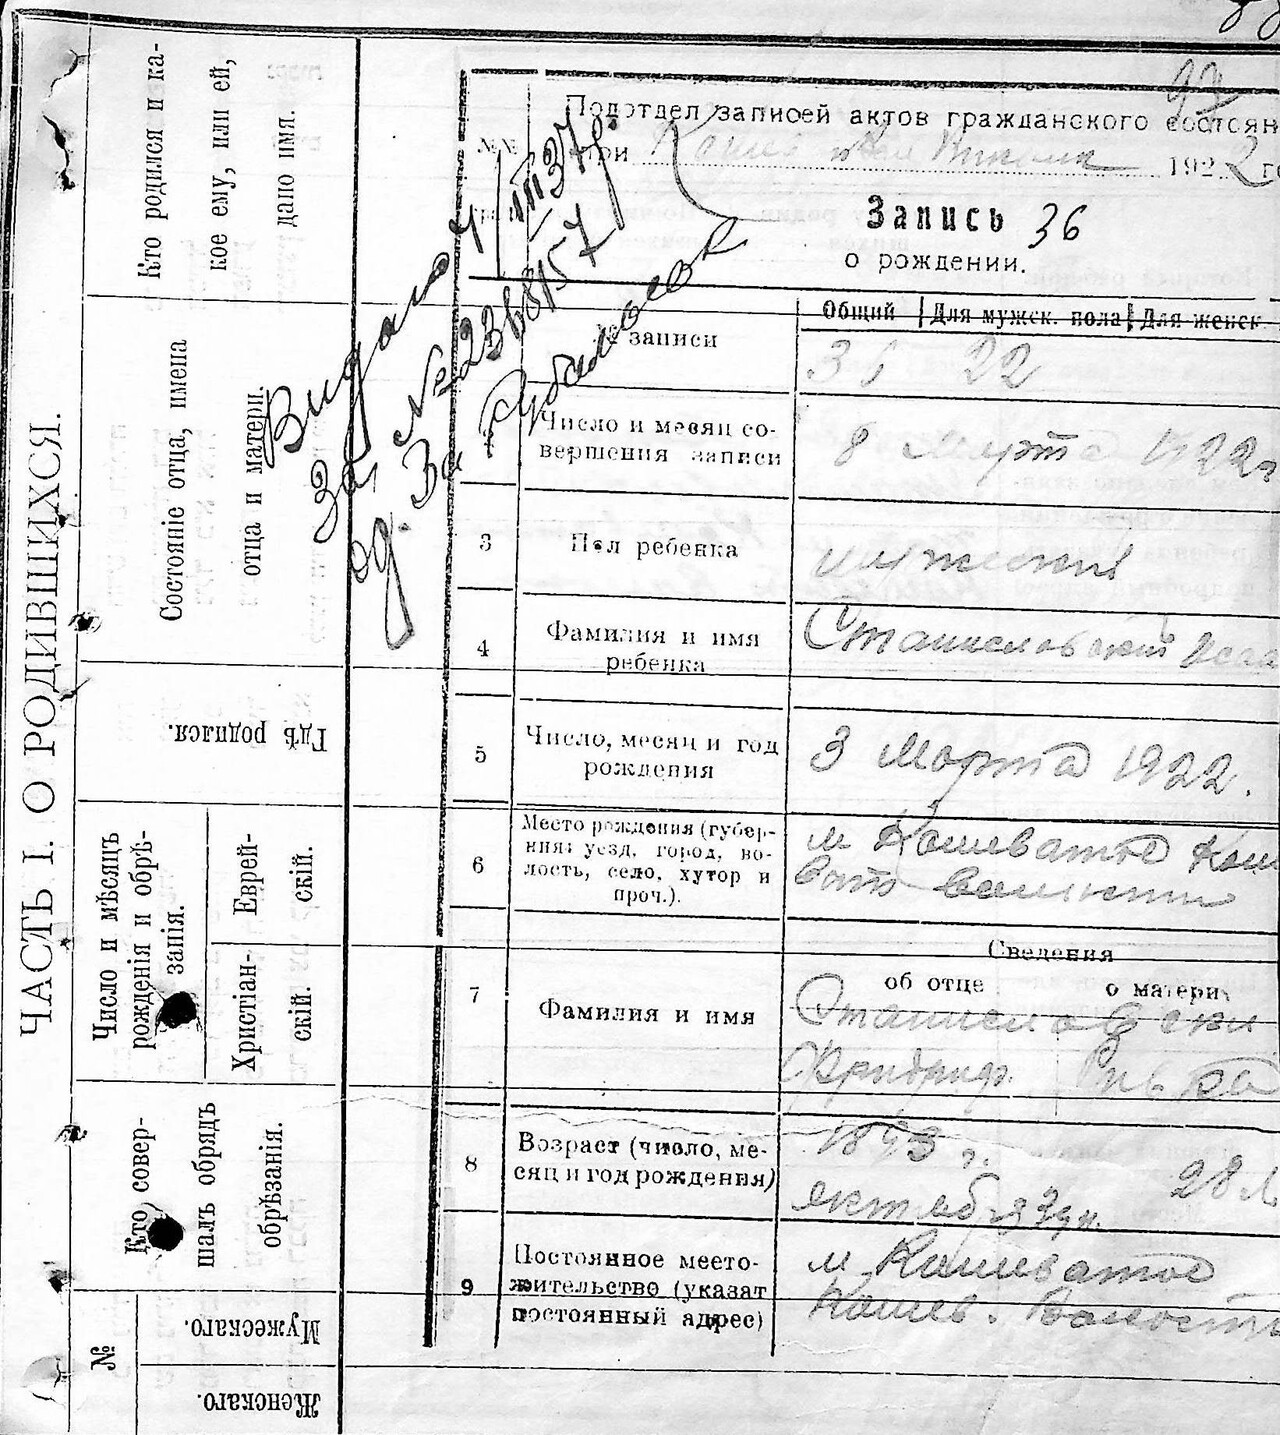 ЧАСТЬ I. О РОДИВШИХСЯ.
Кто родился и ка-
кое ему, или ей,
дано имя.
Состояніе отца, имена
отца и матери.
Гдѣ родился.
Число и мѣсяцъ
рожденія и обрѣ-
занія.
Еврей-
скій.
Христіан-
скій.
Кто совер-
шалъ обрядъ
обрѣзанія.
№
Мужескаго.
Женскаго.
Видано 4/III 37р.
За № 2368157
За
Подотдел записей актов гражданского состоян
при 1922 го
Запись 36
о рождении.
Общий Для мужск. пола Для женск
№ записи
36 22
Число и месяц со-
вершения записи
8 Марта 1922г
3 Пол ребенка
мужской
4 Фамилия и имя
ребенка
Станиславский Исаа
5 Число, месяц и год
рождения
3 Марта 1922.
6 Место рождения (губер-
ния, уезд, город, во-
лость, село, хутор и
проч.).
м Кошеватое Кош
Сведения
об отце о матери
7 Фамилия и имя
Станиславски
Ривка
8 Возраст (число, ме-
сяц и год рождения)
1893 г.
октября 3дн.
28 л
9 Постоянное место-
жительство (указат
постоянный адрес)
м. Кошеватое
Кошев. Волость